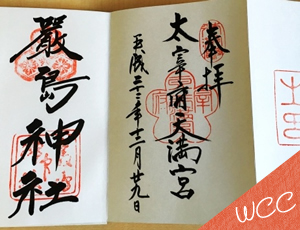 奉拝
太宰府天満宮
平成二十二年十二月廿九日
厳島神社
WCC